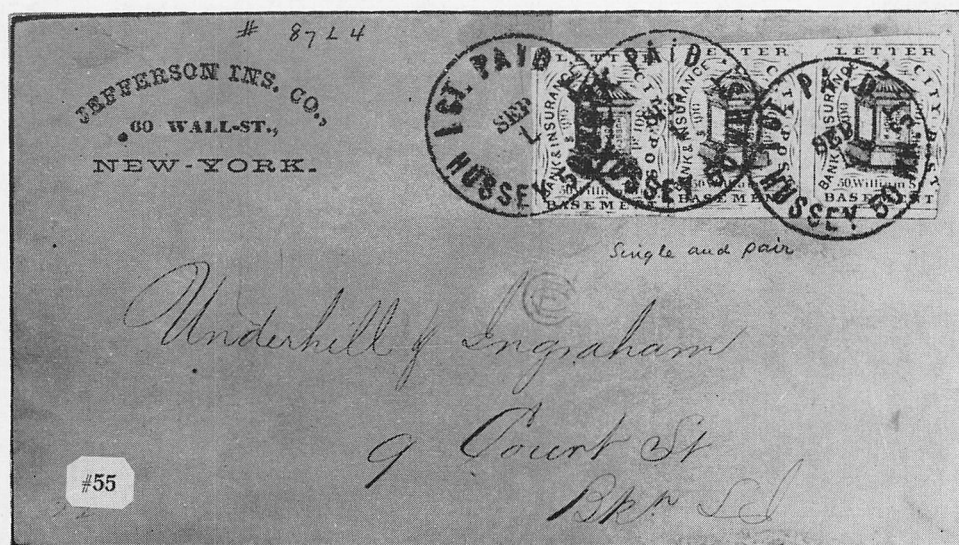 # 87L4
JEFFERSON INS. CO.,
60 WALL-ST.,
NEW-YORK.
1 CT. PAID
SEP
HUSSEY 50
PAID
HUSSEY 50
1 CT. PAID
SEP
HUSSEY 50 WM
LETTER
BANK & INSURANCE
CITY POST
50, William St
BASEMENT
LETTER
BANK & INSURANCE
CITY POST
50, William St
BASEMENT
LETTER
BANK & INSURANCE
CITY POST
50, William St
BASEMENT
Single and pair
Underhill & Ingraham
9 Court St
Bkn L I
#55